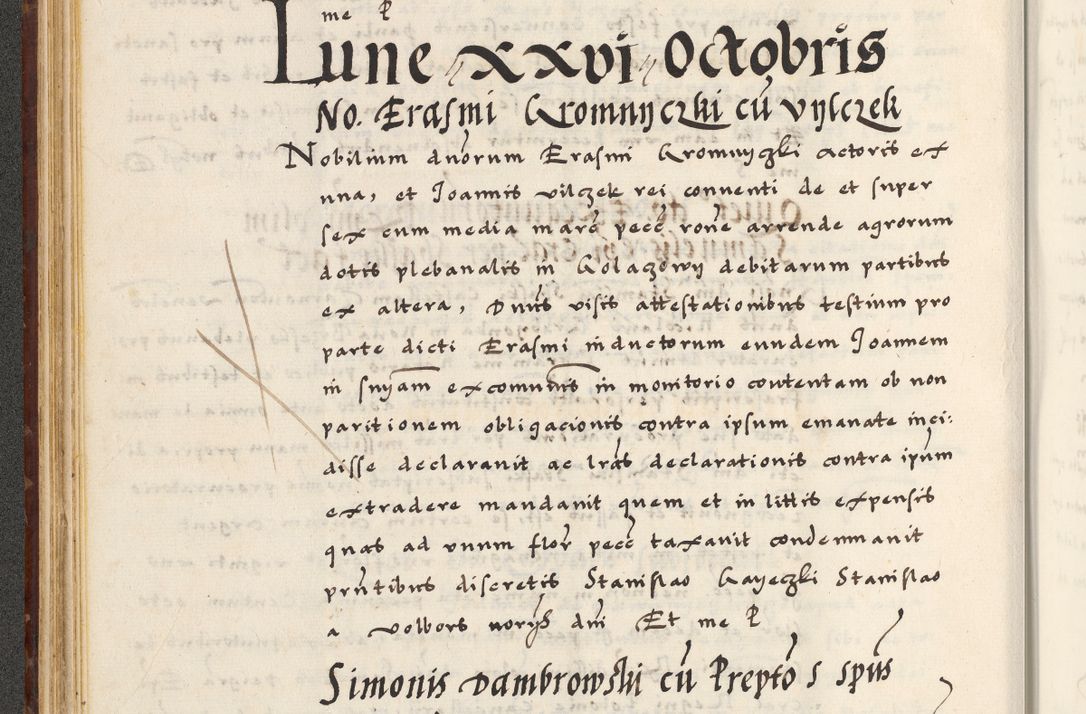 me P
Lune xxvi Octobris
No. Erasmi Gromnyczki cũ Vylczek
Nobilium duorum Erasmi Gromnyczki actoris ex
una, et Joannis vilczek rei conventi de et super
sex cum media marc̃ pecc̃ rone arrende agrorum
dotis plebanalis in Golaczowy debitarum partibus
ex altera, Dnus visis attestationibus testium pro
parte dicti Erasmi inductorum eundem Joannem
in snỹam excomunis in monitorio contentam ob non
paritionem obligacionis contra ipsum emanate inci:
disse declaravit ac lrãs declarationis contra ip̃um
extradere mandavit quem et in littis expensis
quas ad unum flor̃ pecc̃ taxavit condemnavit
pñtibus discretis Stanislao Gayeczki Stanislao
a Volbors norijs dni Et me P
Simonis Dambrowski cũ Prepto S Spũs